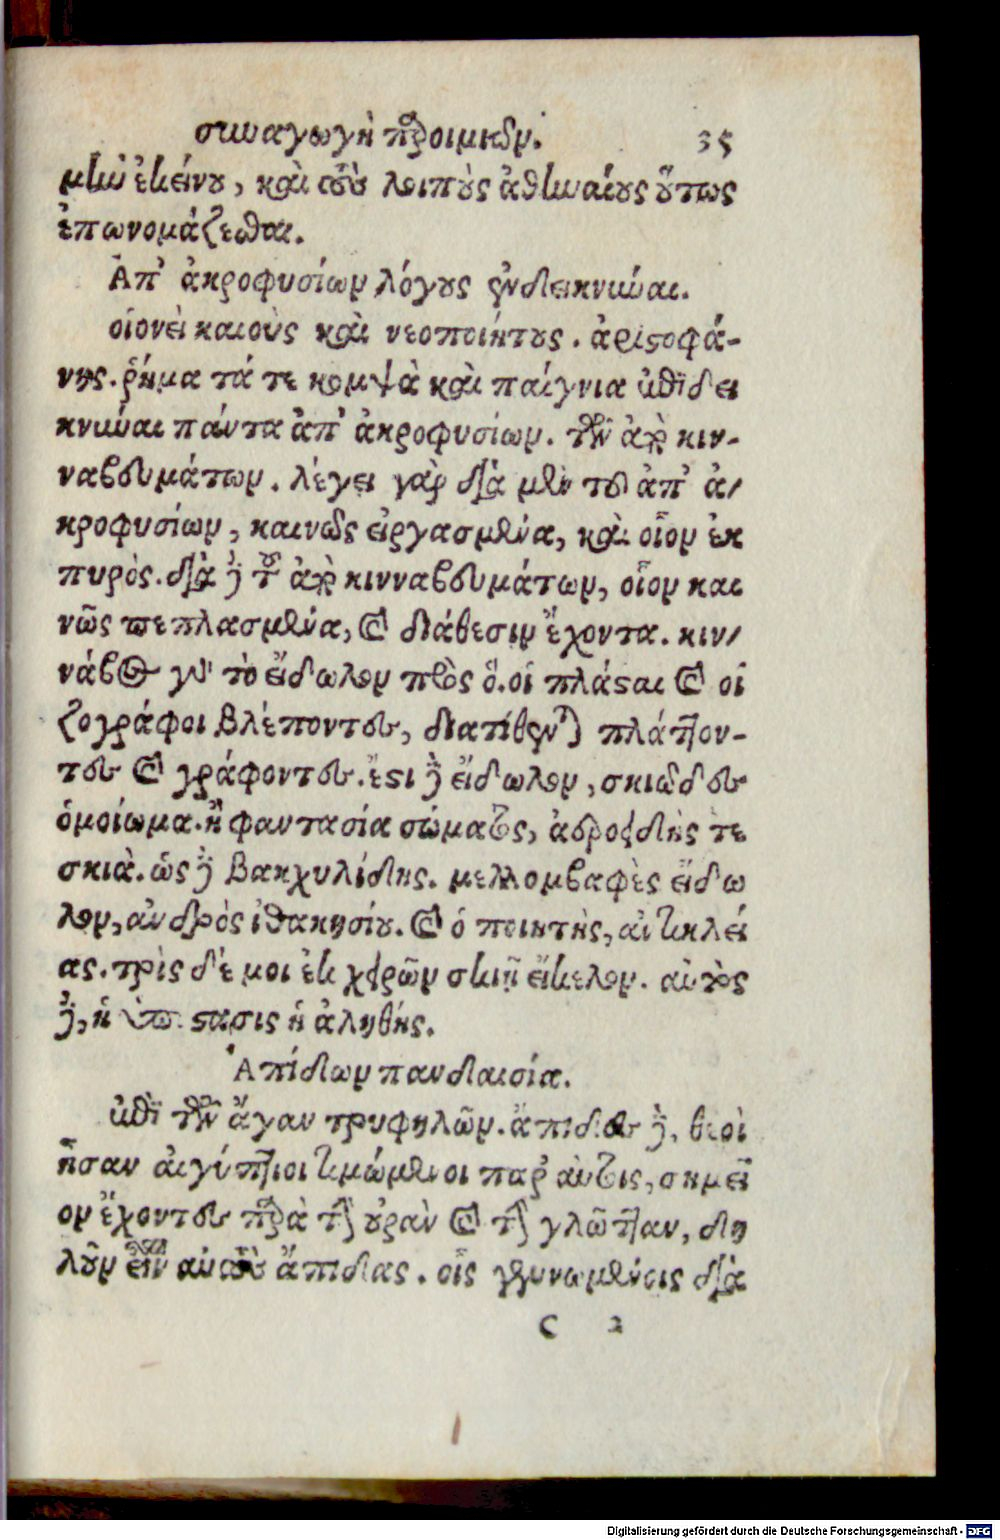 συναγωγὴ παροιμιῶν. 35
μὴν ἐκείνου, καὶ τοὺς λοιποὺς ἀθηναίους οὕτως
ἐπωνομάζεσθαι.
Ἀπ' ἀκροφυσίων λόγους ἐνδεικνύναι.
οἱονεὶ καιοὺς καὶ νεοποιήτους. ἀριστοφά-
νης. ῥήμα τά τε κομψὰ καὶ παίγνια ἐπιδει
κνύναι πάντα ἀπ' ἀκροφυσίων. τῶν ἀπὸ κιν-
ναβευμάτων. λέγει γὰρ διὰ μὲν τοῦ ἀπ' ἀ-
κροφυσίων, καινῶς εἰργασμένα, καὶ οἷον ἐκ
πυρὸς. διὰ δὲ τοῦ ἀπὸ κινναβευμάτων, οἷον και
νῶς πεπλασμένα, καὶ διάθεσιν ἔχοντα. κιν-
νάβος γὰρ τὸ εἴδωλον πρὸς ὅ. οἱ πλάσαι καὶ οἱ
ζογράφοι βλέποντες, διατίθενται πλάττον-
τες καὶ γράφοντες. ἔστι δὲ εἴδωλον, σκιῶδες
ὁμοίωμα. ἢ φαντασία σώματος, ἀεροειδής τε
σκιὰ. ὡς δὲ βακχυλίδης. μελλομβαφὲς εἴδω
λον, ἀνδρὸς ἰθακησίου. καὶ ὁ ποιητὴς, ἀντικλεί
ας. τρὶς δέ μοι ἐκ χειρῶν σκιῇ εἴκελον. αὐτὸς
δὲ, ἡ ὑπόστασις ἡ ἀληθής.
Ἀπίδων πανδαισία.
ἐπὶ τῶν ἄγαν τρυφηλῶν. ἄπιδες δὲ, θεοὶ
ἦσαν αἰγύπτιοι τιμώμενοι παρ' αὐτοῖς, σημεῖ
ον ἔχοντες παρὰ τὴν οὐρὰν καὶ τὴν γλῶτταν, δη
λοῦν εἶναι αὐτοὺς ἄπιδας. οἷς γενομένοις διὰ
c 2
Digitalisierung gefördert durch die Deutsche Forschungsgemeinschaft - DFG